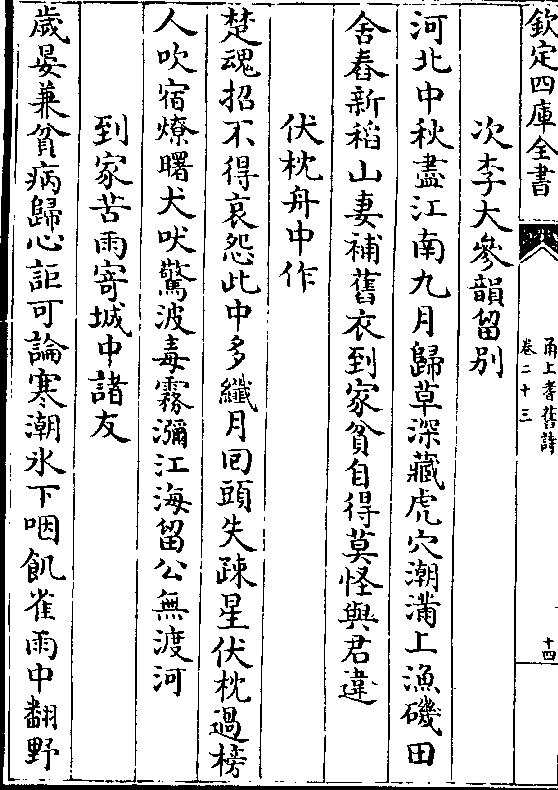 欽定四庫全書
甬上耆舊詩
卷二十三
十四
次李大參韻留别
河北中秋盡江南九月歸草深藏虎穴潮滿上漁磯田
舍舂新稻山妻補舊衣到家貧自得莫怪與君違
伏枕舟中作
楚魂招不得哀怨此中多纖月回頭失踈星伏枕過榜
人吹宿燎曙犬吠驚波毒霧瀰江海留公無渡河
到家苦雨寄城中諸友
歲晏兼貧病歸心詎可論寒潮氷下咽飢雀雨中翻野